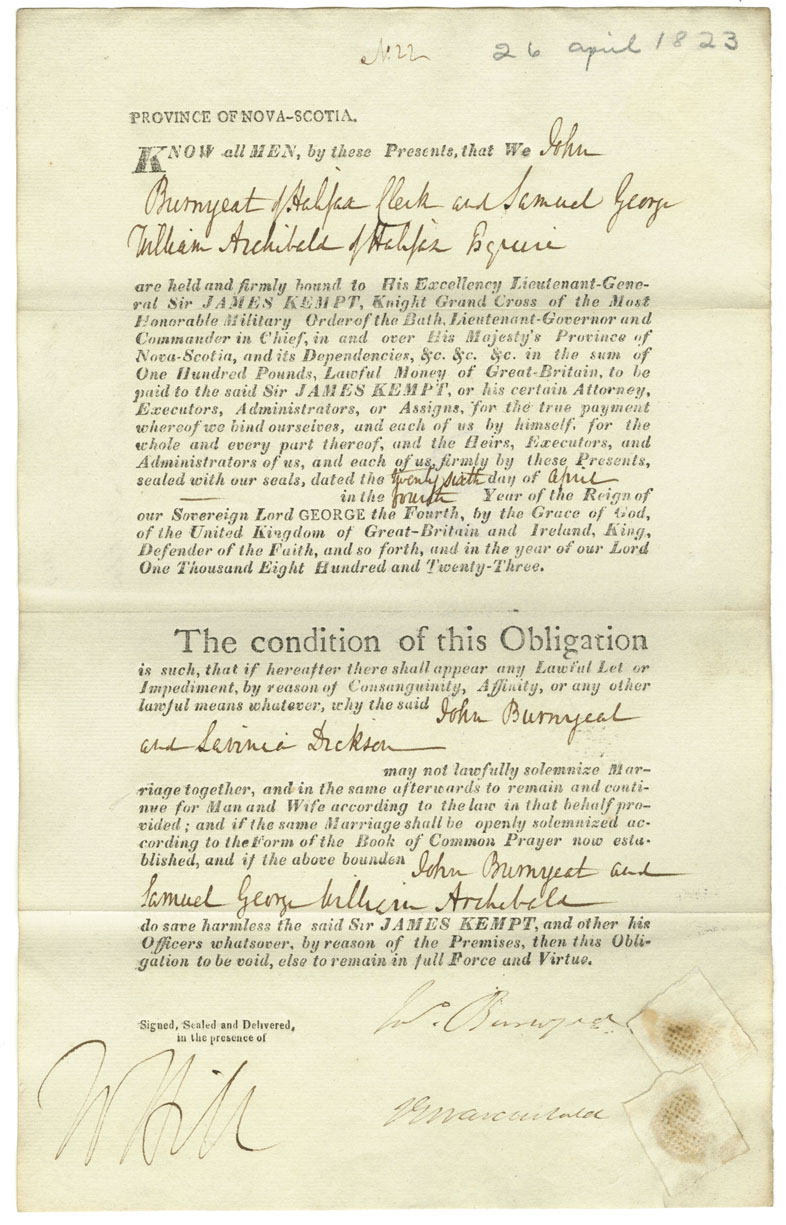 No. 22
26 april 1823
PROVINCE OF NOVA-SCOTIA.
KNOW all MEN, by these Presents, that We John
Burnyeat of Halifax Clerk and Samuel George
William Archibald of Halifax Esquire
are held and firmly bound to His Excellency Lieutenant-Gene-
ral Sir JAMES KEMPT, Knight Grand Cross of the Most
Honorable Military Order of the Bath, Lieutenant-Governor and
Commander in Chief, in and over His Majesty's Province of
Nova-Scotia, and its Dependencies, &c. &c. &c. in the sum of
One Hundred Pounds, Lawful Money of Great-Britain, to be
paid to the said Sir JAMES KEMPT, or his certain Attorney,
Executors, Administrators, or Assigns, for the true payment
whereof we bind ourselves, and each of us by himself, for the
whole and every part thereof, and the Heirs, Executors, and
Administrators of us, and each of us, firmly by these Presents,
sealed with our seals, dated the twenty sixth day of april
in the fourth Year of the Reign of
our Sovereign Lord GEORGE the Fourth, by the Grace of God,
of the United Kingdom of Great-Britain and Ireland, King,
Defender of the Faith, and so forth, and in the year of our Lord
One Thousand Eight Hundred and Twenty-Three.
The condition of this Obligation
is such, that if hereafter there shall appear any Lawful Let or
Impediment, by reason of Consanguinity, Affinity, or any other
lawful means whatever, why the said John Burnyeat
and Lavinia Dickson
may not lawfully solemnize Mar-
riage together, and in the same afterwards to remain and conti-
nue for Man and Wife according to the law in that behalf pro-
vided; and if the same Marriage shall be openly solemnized ac-
cording to the Form of the Book of Common Prayer now esta-
blished, and if the above bounden John Burnyeat and
Samuel George William Archibald
do save harmless the said Sir JAMES KEMPT, and other his
Officers whatsover, by reason of the Premises, then this Obli-
gation to be void, else to remain in full Force and Virtue.
Signed, Sealed and Delivered,
in the presence of
Jno. Burnyeat
W Hill